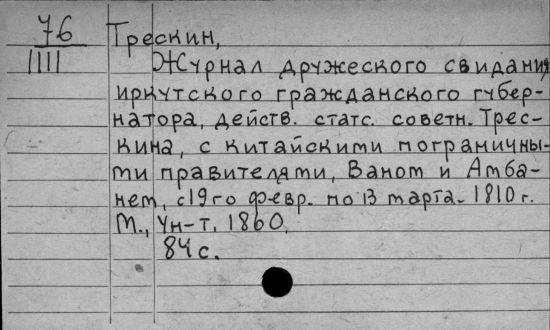 76 Трескин,
IIII Журнал дружеского свидания
иркутского гражданского губер-
натора, действ. статс. советн. Трес-
кина, с китайскими пограничны-
ти правителяти, Ваном и Амба-
нем, с 19 го февр. по 13 марта. 1810 г.
М., Ун-т, 1860.
84 с.